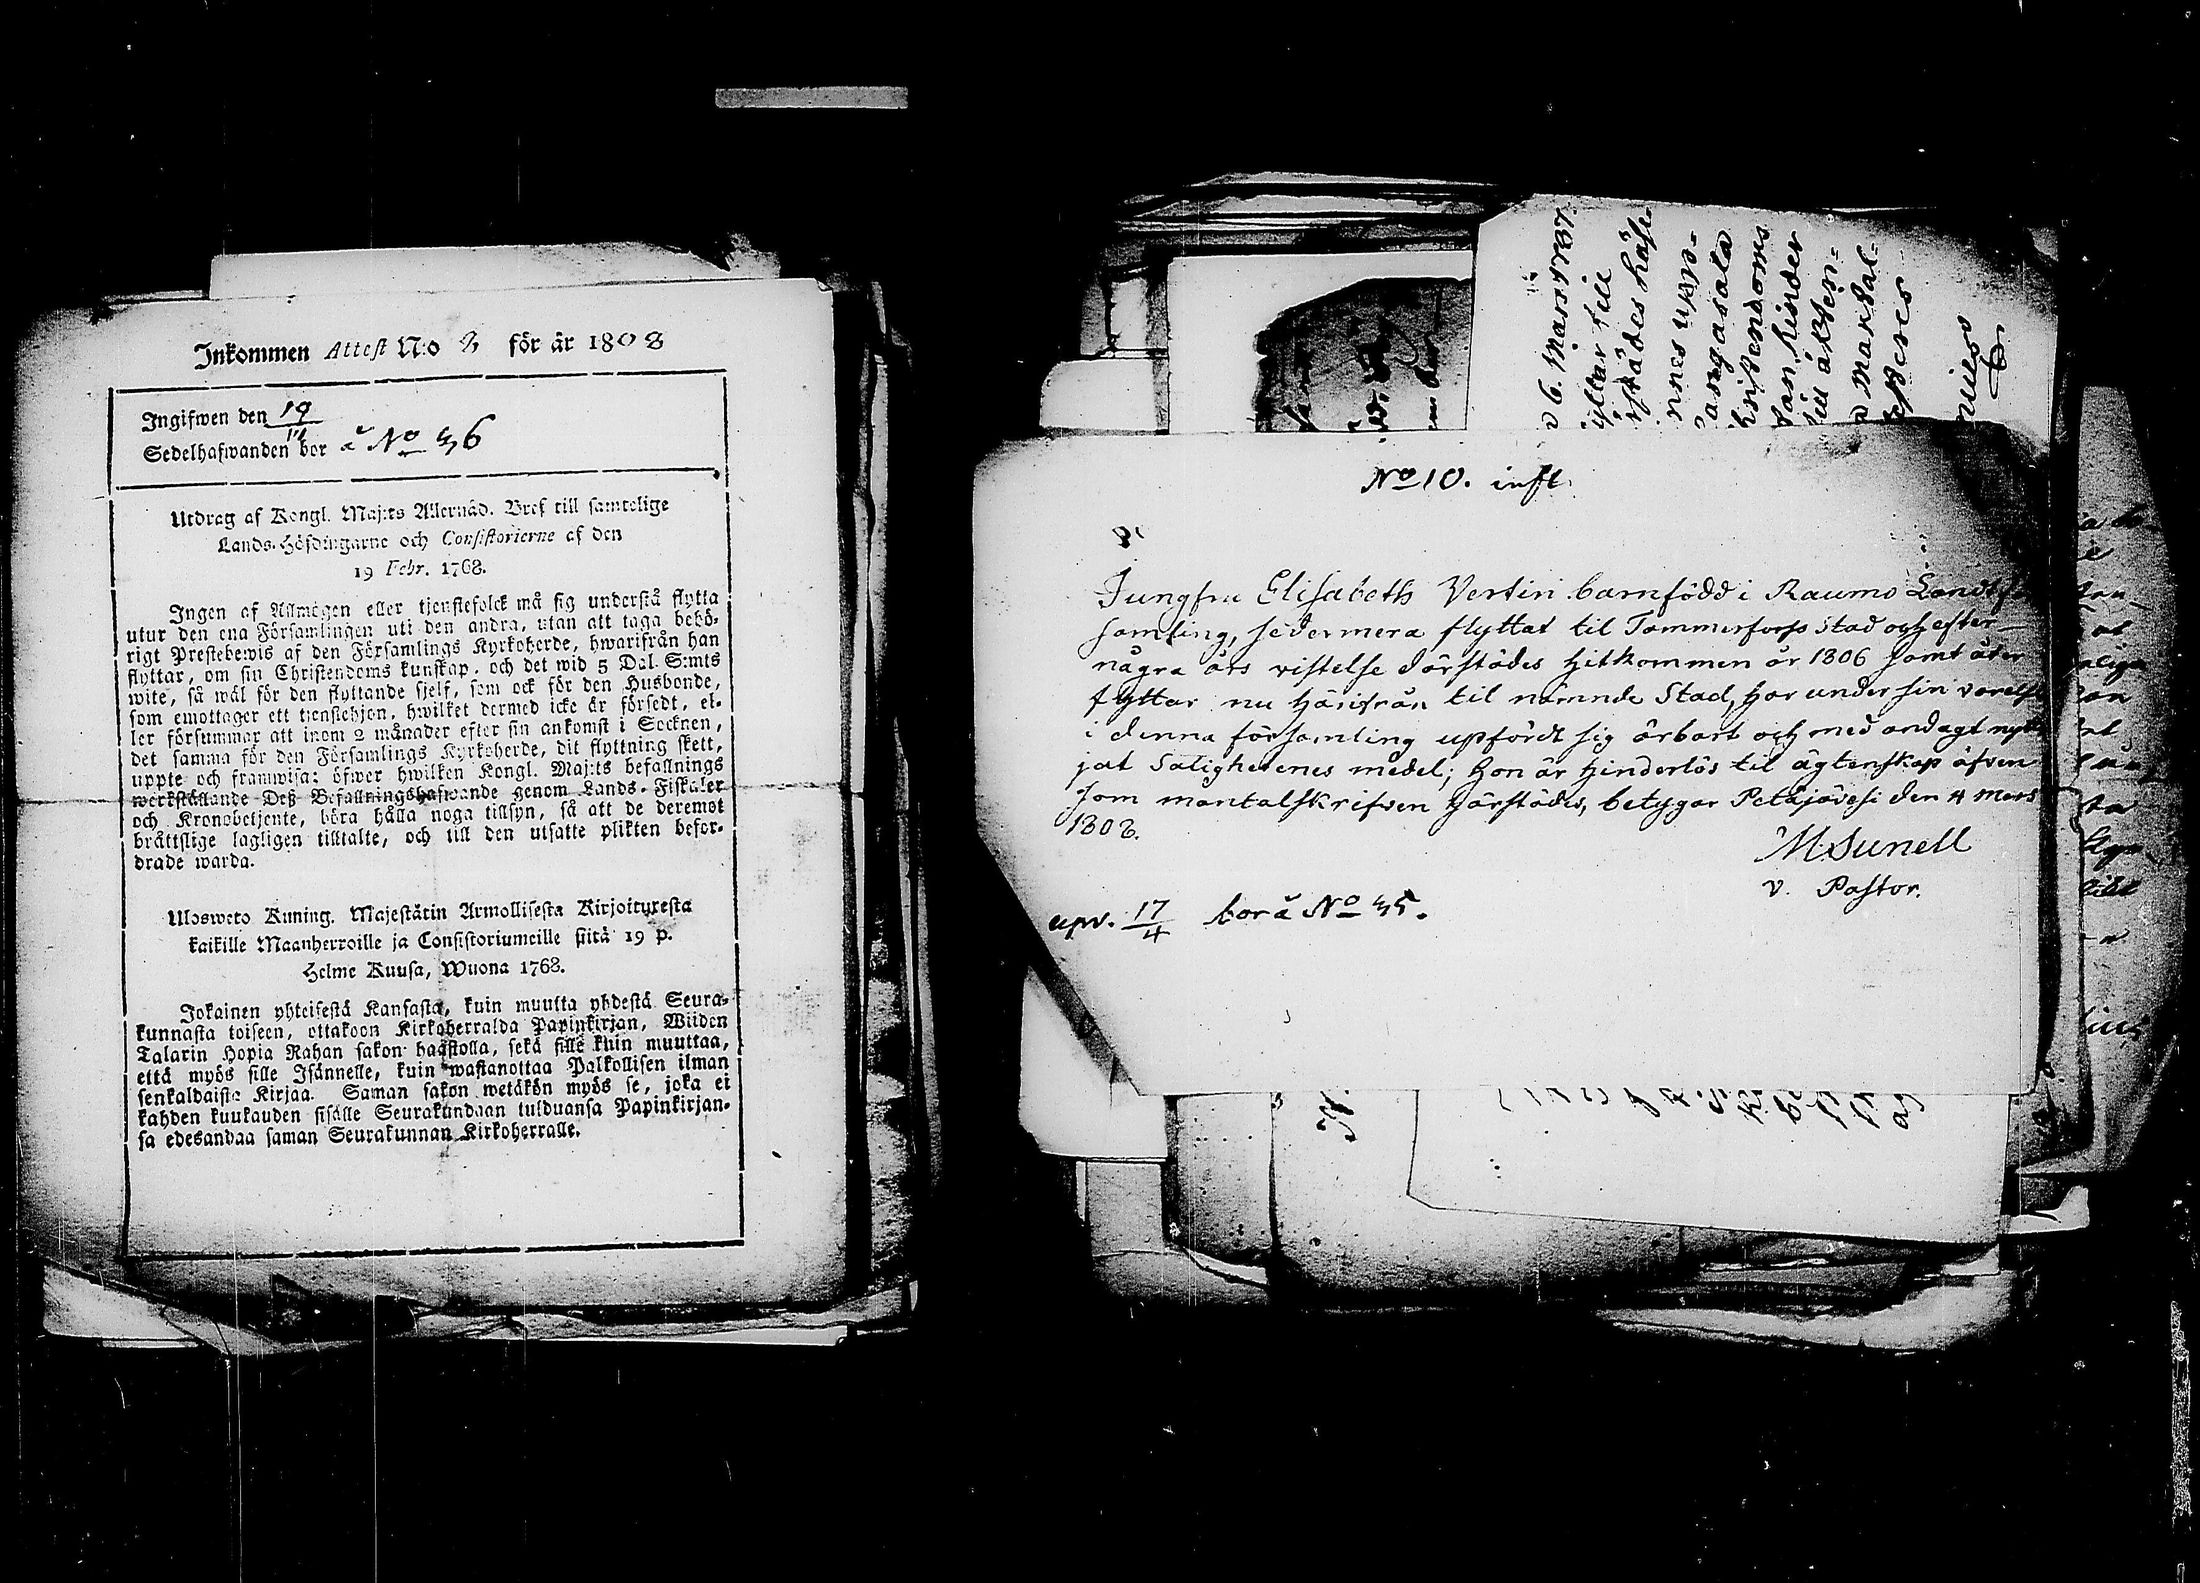 Inkommen Attest N:o 3 för år 1808
Ingifwen den 19
Sedelhafwanden bor å No 36
Utdrag af Kongl. Maj:ts Allernåd. Bref till samtelige
Lands-Höfdingarne och Consistorierne af den
19 Febr. 1768.
Ingen af Allmogen eller tjenstefolck må sig understå flytta
utur den ena Församlingen uti den andra, utan att taga behö-
rigt Prestebewis af den Församlings Kyrkoherde, hwarifrån han
flyttar, om sin Christendoms kunskap, och det wid 5 Dal. S:mts
wite, så wäl för den flyttande sjelf, som ock för den Husbonde,
som emottager ett tjenstehjon, hwilket dermed icke är försedt, el-
ler försummar att inom 2 månader efter sin ankomst i Socknen,
det samma för den Församlings Kyrkoherde, dit flyttning skett,
uppte och framwisa: öfwer hwilken Kongl. Maj:ts befallnings
werkställande Deß Befallningshafwande genom Lands-Fiskaler
och Kronobetjente, böra hålla noga tillsyn, så att de deremot
bråttslige lagligen tilltalte, och till den utsatte plikten befor-
drade warda.
Ulosweto Kuning. Majestätin Armollisesta Kirjoituxesta
kaikille Maanherroille ja Consistoriumeille siitä 19 p.
Helme Kuusa, Wuona 1768.
Jokainen yhteisestä Kansasta, kuin muutta yhdestä Seura-
kunnasta toiseen, ottakoon Kirkoherralda Papinkirjan, Wiiden
Talarin Hopia Rahan sakon haastolla, sekä sille kuin muuttaa,
että myös sille Isännelle, kuin wastanottaa Palkollisen ilman
senkaldaista Kirjaa. Saman sakon wetäkön myös se, joka ei
kahden kuukauden sisälle Seurakundaan tulduansa Papinkirjan-
sa edesandaa saman Seurakunnan Kirkoherralle.
6. Mars 1737
till
städes
nes upp-
hinder
till
No 10. inft.
Jungfru Elisabeth Vertin barnfödd i Raumo Landtför
samling, sedermera flyttat til Tammerfors stad och efter
några års vistelse därstädes hitkommen år 1806 samt åter
flyttar nu härifrån til nämnde Stad, har under sin varelse
i denna församling upfördt sig ärbart och med andagt nytt
jat Salighetenes medel; hon är hinderlös til ägtenskap äfven
som mantalskrifven härstädes, betygar Petäjävesi den 4 Mars
1808.
M. Sunell
v. Pastor.
upv. 17/4 bor å No 35.